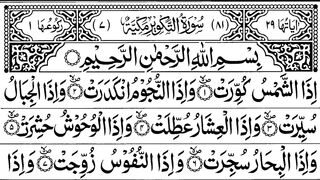 اٰیَاتُهَا ٢٩ (٨١) سُوْرَةُ التَّكْوِيْرِ مَكِّيَّةٌ (٧) رُكُوْعُهَا ١
بِسْمِ اللّٰهِ الرَّحْمٰنِ الرَّحِيْمِ
اِذَا الشَّمْسُ كُوِّرَتْ ۝١ وَاِذَا النُّجُوْمُ انْكَدَرَتْ ۝٢ وَاِذَا الْجِبَالُ
سُيِّرَتْ ۝٣ وَاِذَا الْعِشَارُ عُطِّلَتْ ۝٤ وَاِذَا الْوُحُوْشُ حُشِرَتْ ۝٥
وَاِذَا الْبِحَارُ سُجِّرَتْ ۝٦ وَاِذَا النُّفُوْسُ زُوِّجَتْ ۝٧ وَاِذَا